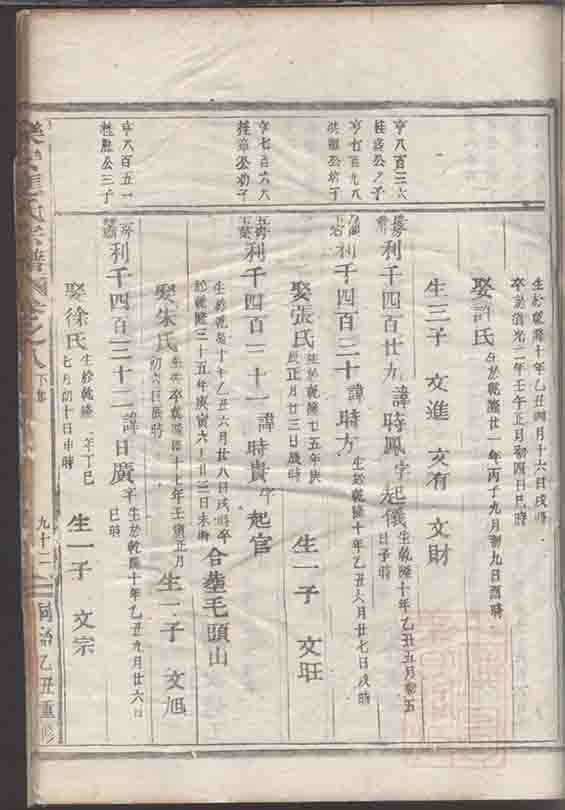 生於乾隆十年乙丑四月十六日戌時
卒於道光二年壬午正月初四日巳時
娶許氏 生於乾隆廿一年丙子九月初九日酉時
生三子 文進 文有 文財
亨八百三六
桂 公之子
利千四百廿九 諱時鳳 字起儀 生乾隆十年乙丑五月初五
日子時
亨七百九八
公幼子
利千四百三十 諱時方 生於乾隆十年乙丑六月廿七日戌時
娶張氏 生於乾隆廿五年庚
辰正月廿三日歲時 生一子 文旺
亨七百六六
桂章公幼子
利千四百三十一 諱時貴 字起官
生於乾隆十年乙丑六月廿八日戌時卒
於乾隆三十五年庚寅六月廿三日未時 合塟毛頭山
娶朱氏 卒乾隆四十七年壬寅正月
初六日辰時 生一子 文旭
亨八百五一
桂 公三子
利千四百三十二 諱日廣 生於乾隆十年乙丑九月廿六日
巳時
娶徐氏 生於乾隆 年丁巳
七月初十日申時 生一子 文宗
氏宗譜 卷之八 下集 九十二 同治乙丑重修